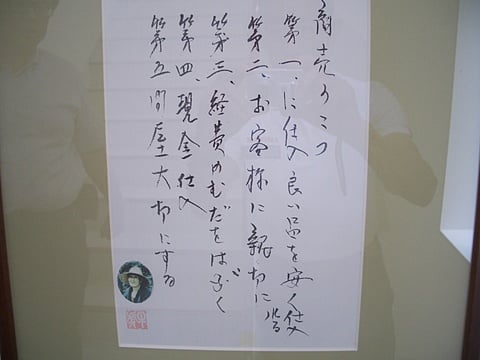 商売のこつ
第一、に仕入良い品を安く仕入
第二、お客様に親切に�る
第三、経費のむだをはぶく
第四、現金仕入
第五間屋大切にする